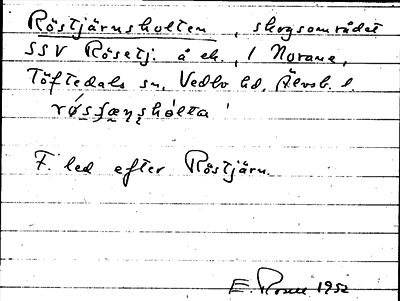 Röstjärnsholten, skogsområdet
SSV Rösetj. å ek., 1 Norane,
Töftedals sn, Vedbo hd, Älvsb. l.
F. led efter Röstjärn.
E. Rosell 1952